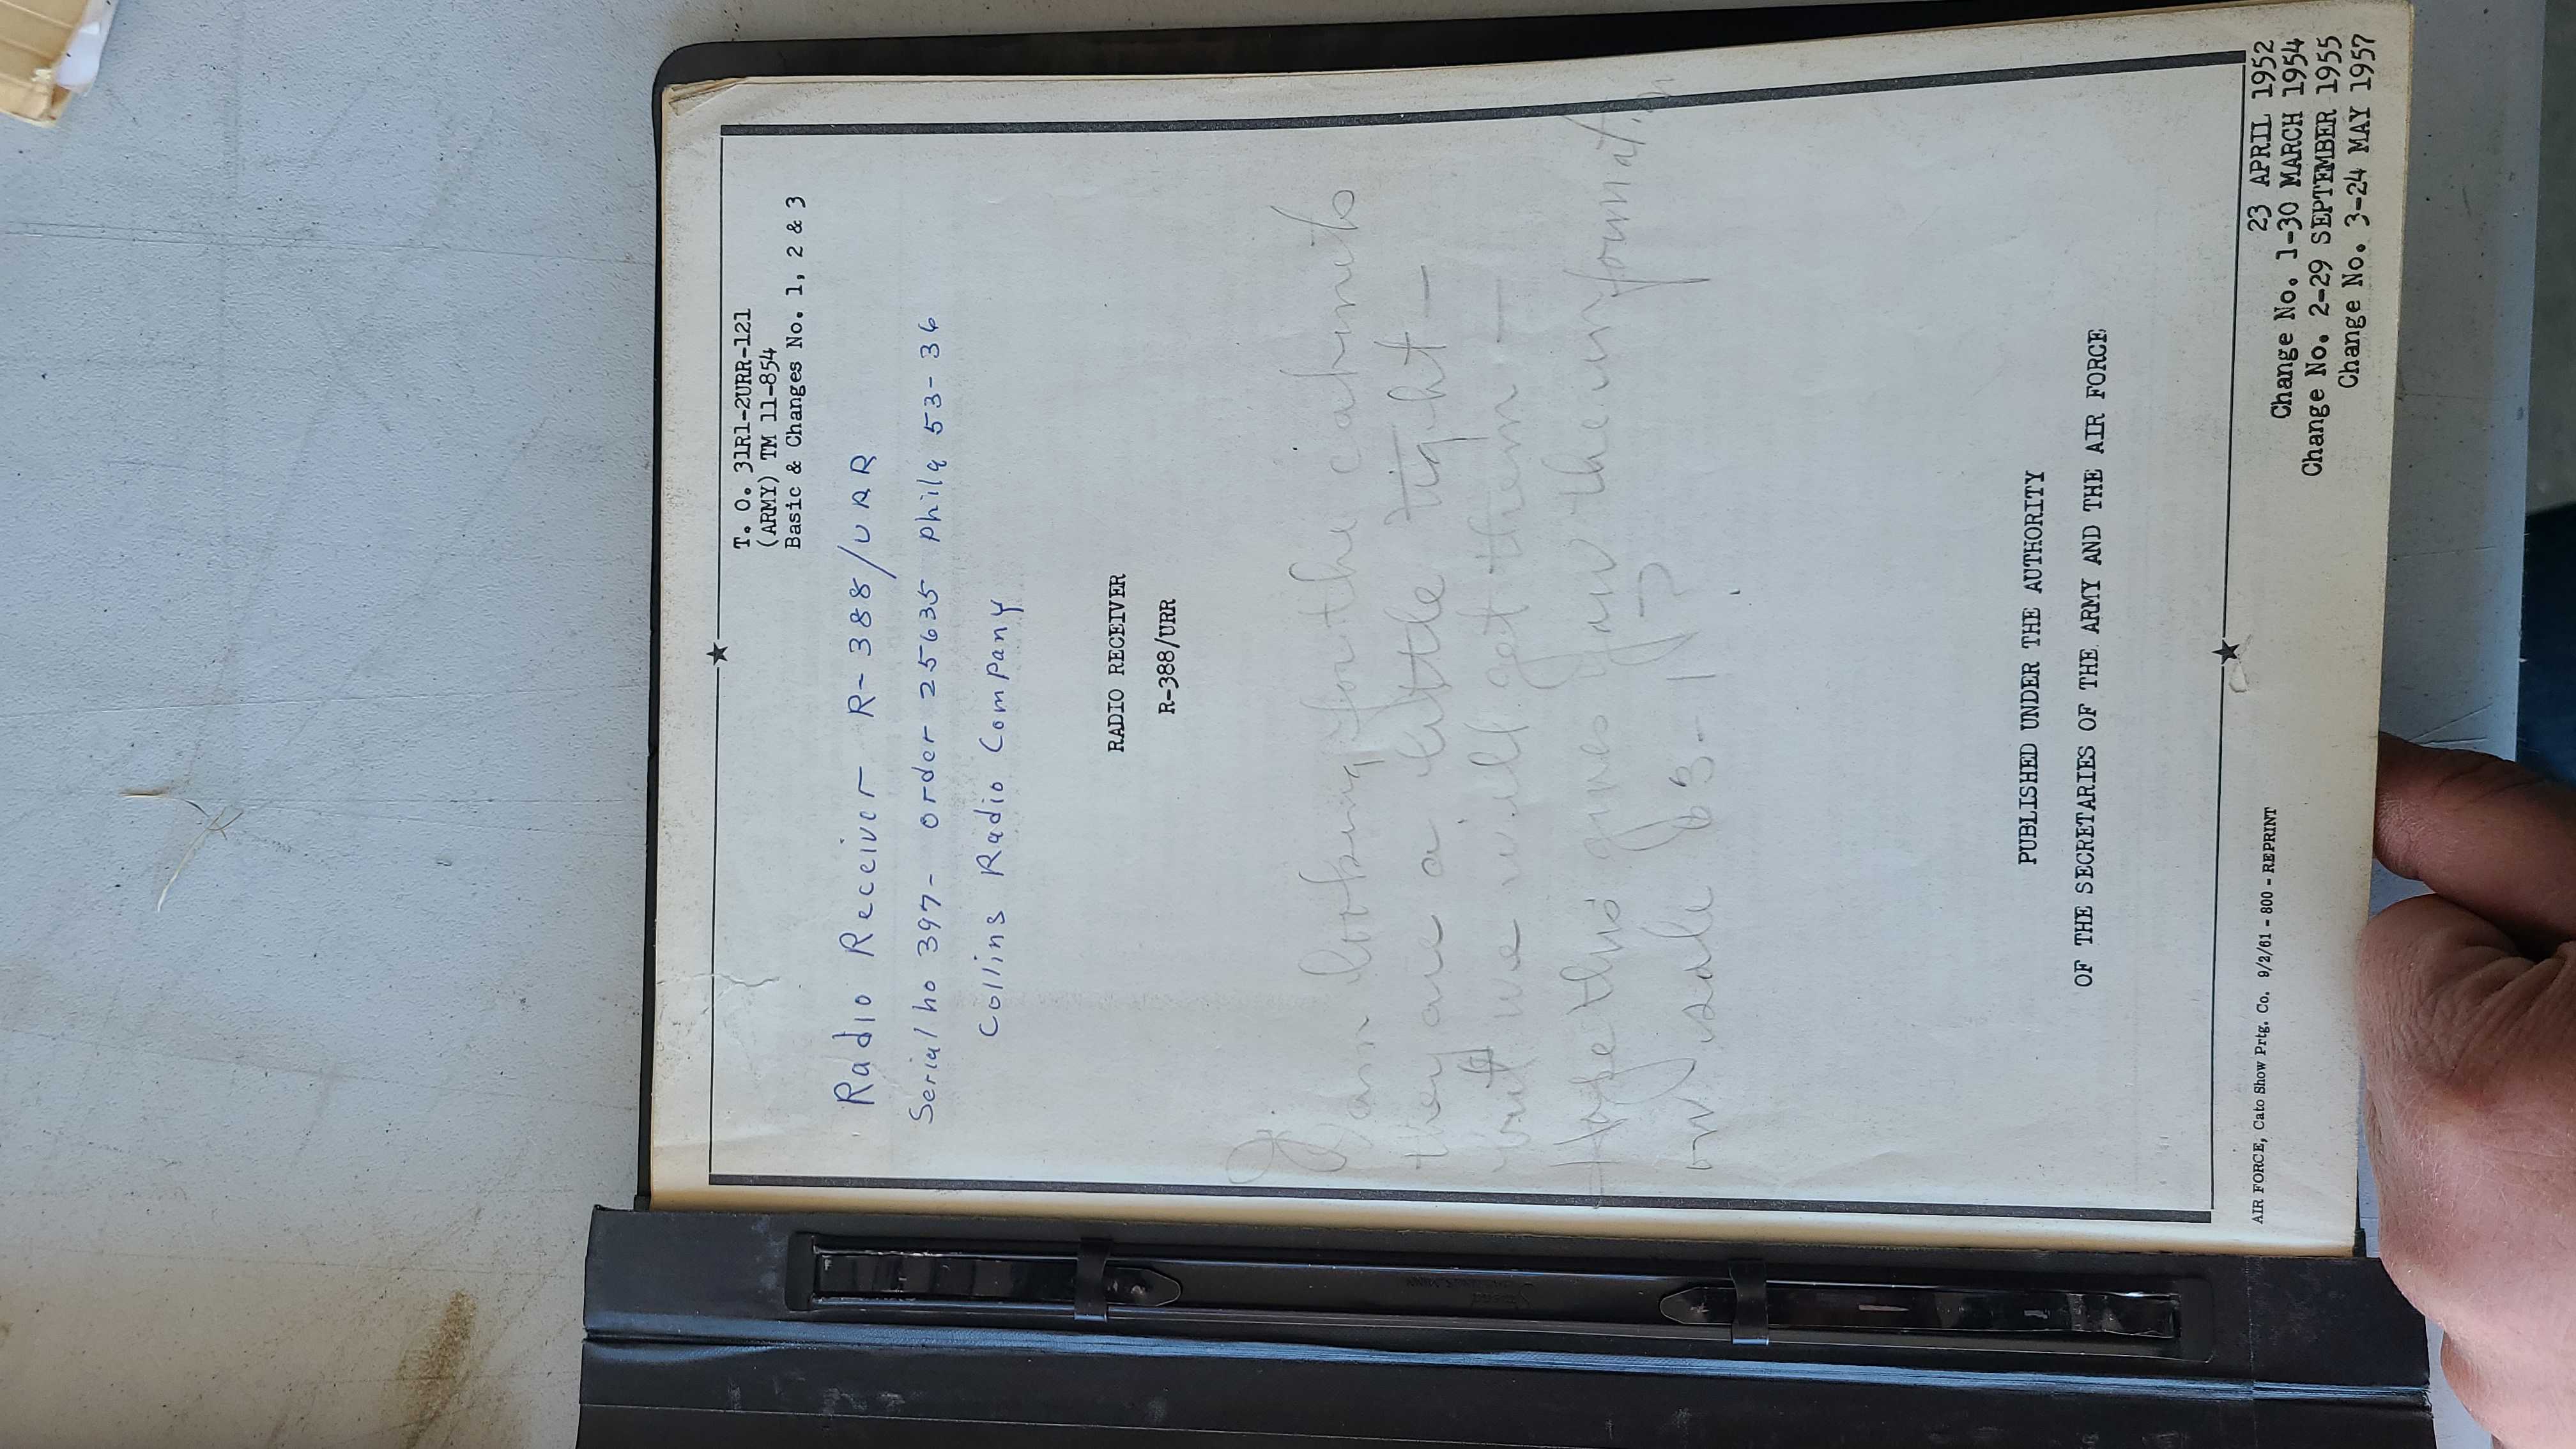 T. O. 31R1-2URR-121
(ARMY) TM 11-854
Basic & Changes No. 1, 2 & 3
Radio Receiver R-388/URR
Serial no 397- order 25635 Phila 53-36
Collins Radio Company
RADIO RECEIVER
R-388/URR
I am looking for the cabinets
they are a little tight -
but we will get them -
Hope this gives you the information
on sale
PUBLISHED UNDER THE AUTHORITY
OF THE SECRETARIES OF THE ARMY AND THE AIR FORCE
AIR FORCE, Cato Show Prtg. Co. 9/2/61 - 800 - REPRINT
23 APRIL 1952
Change No. 1-30 MARCH 1954
Change No. 2-29 SEPTEMBER 1955
Change No. 3-24 MAY 1957